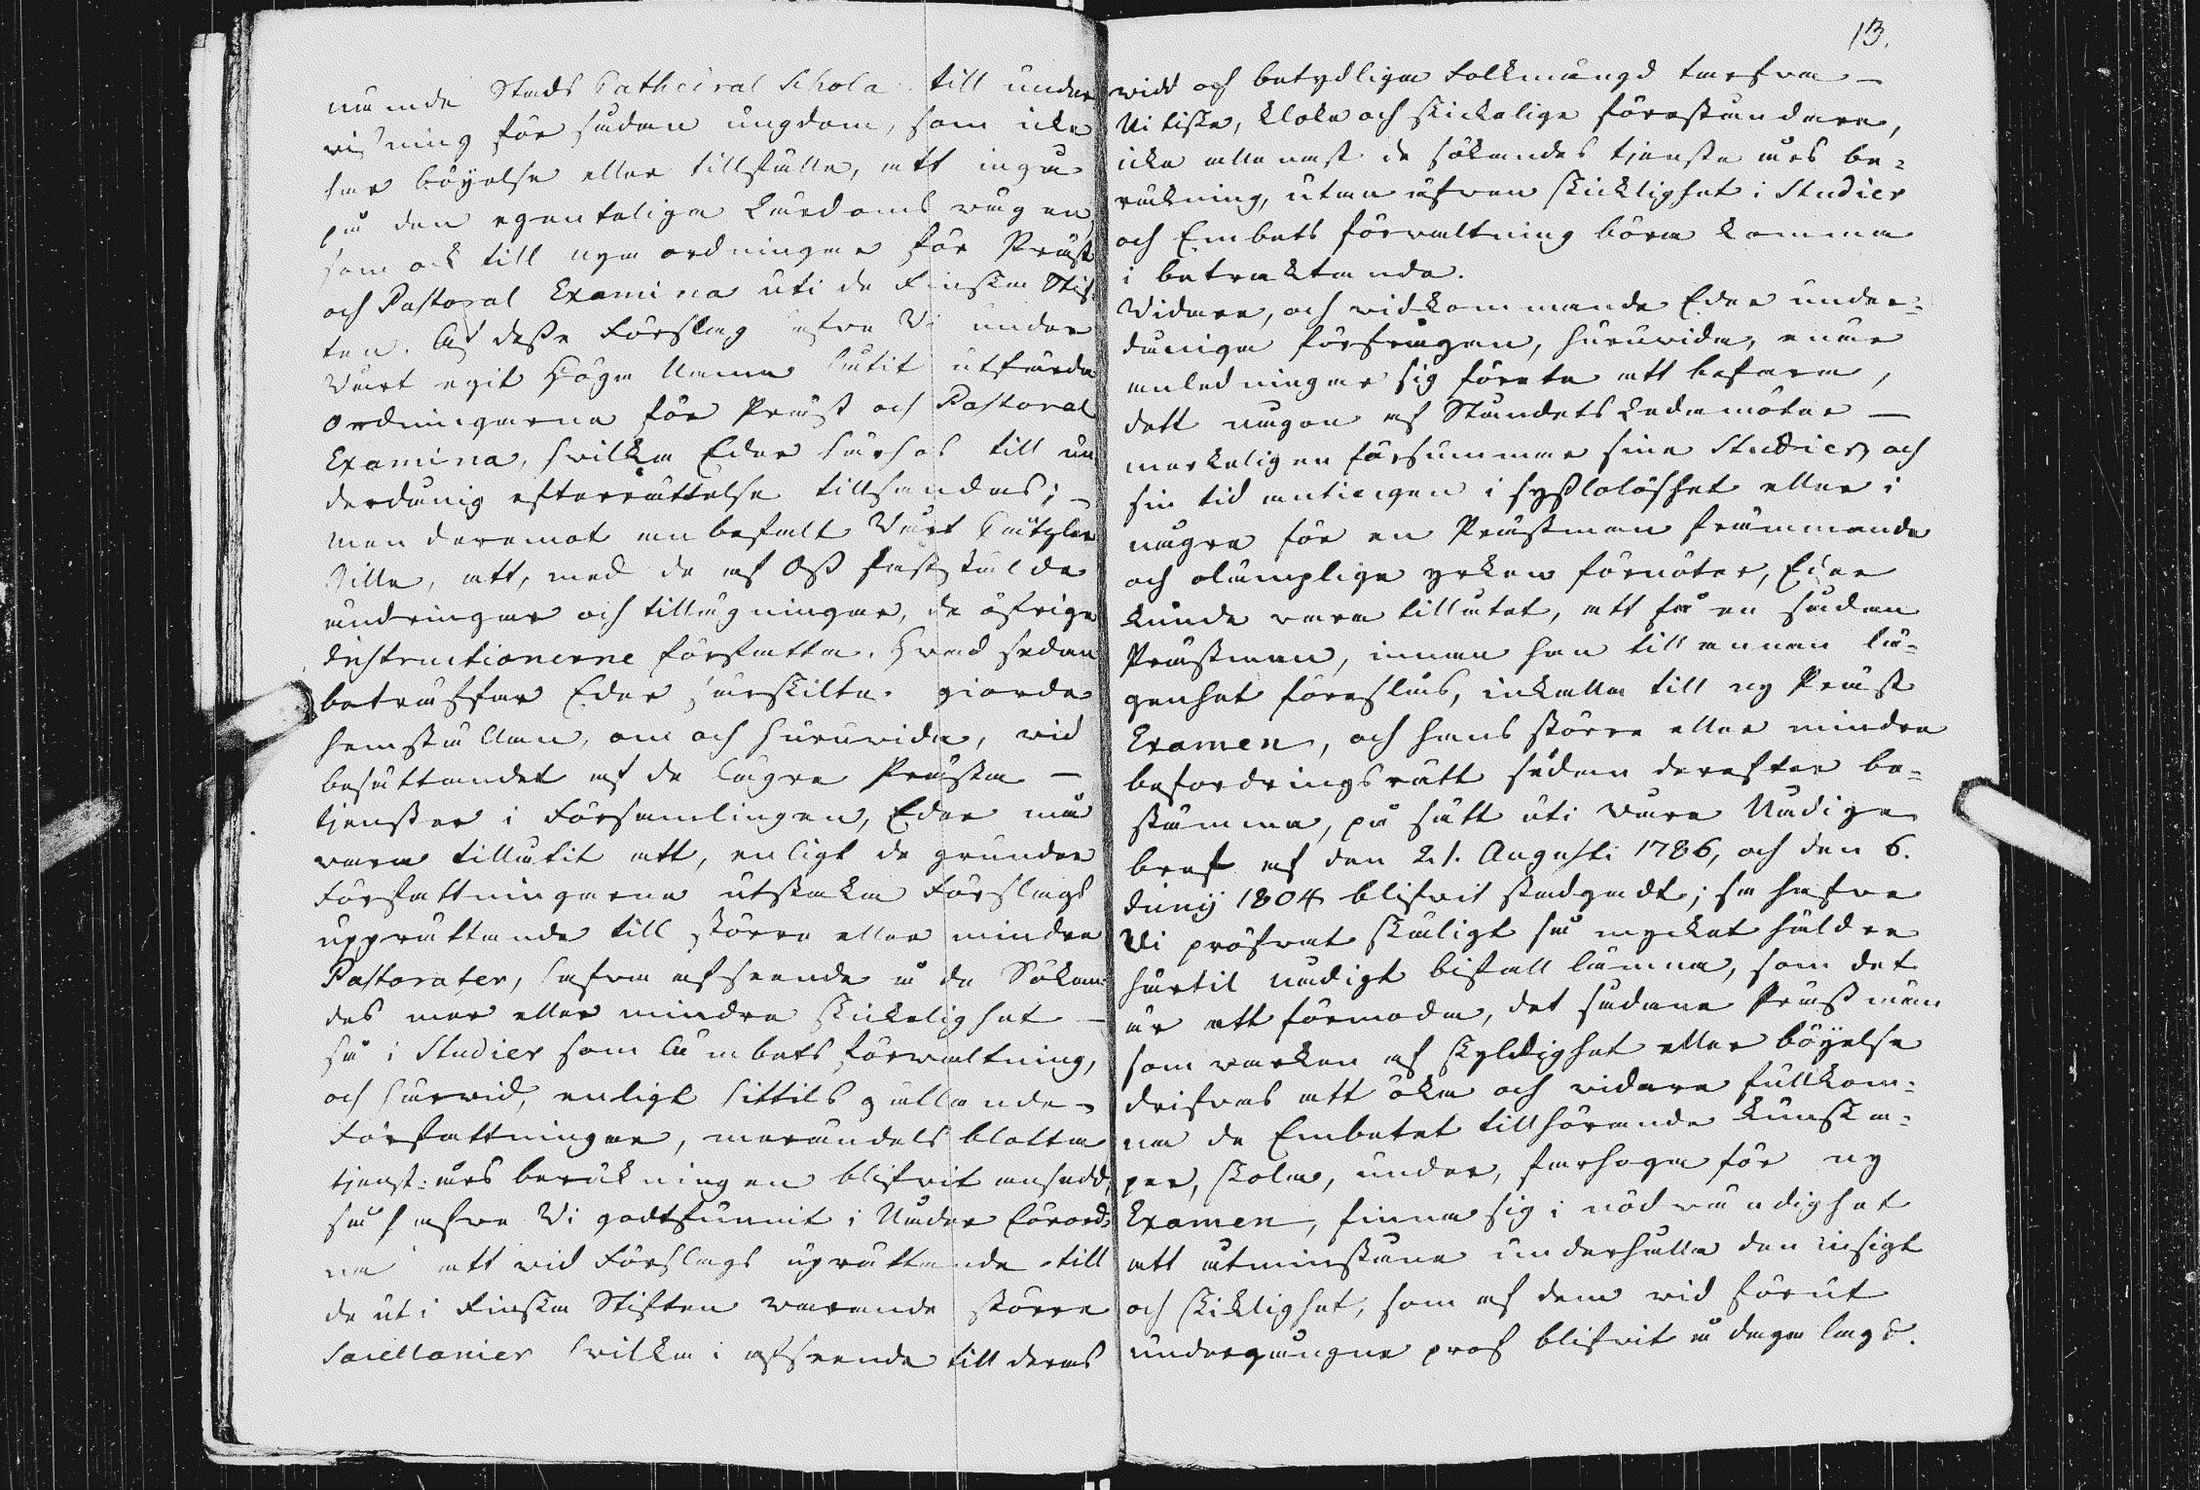 nämnde Stads Cathedral Schola till under
visning för sådan ungdom, som icke
har böyelse eller tillfälle, att ingå
på den egentelige Lärdoms vägen
som ock till nya ordningar för Präst
och Pastoral Examina uti de Finska Stif-
ten. Af desse Förslag hafve Vi under
Vårt egit Höga Namn låtit utfärda
ordningarna för Präst och Pastoral
Examina, hvilka Eder härhos till un
derdånig efterrättelse tillsändas; –
men deremot anbefalt Vårt Cantzlie
Gille, att, med de af Oß faststälde
ändringar och tilläggningar, de öfrige
Instructionerne författa. Hvad sedan
beträffar Eder särskilte giorde
hemställan, om och huruvida, vid
besättandet af de lägre Prästa –
tjenster i Församlingen, Eder må
vara tillåtit att, enligt de grunder
Författningarna utstaka Förslags
upprättande till större eller mindre
Pastorater, hafva afseende å de Sökan-
des mer eller mindre skickelighet –
så i Studier som Embets förvaltning,
och härvid, enligt hittils gällande –
Författningar, merendels blotta
tjenst: års beräkningen blifvit ansedd,
så hafve Vi godtfunnit i Nåder förord-
na att vid Förslags uprättande till
de uti Finska Stiften varande större
Sacellanier hvilka i afseende till deras
13.
vidd och betydliga folkmängd tarfva –
Nitiske, kloke och skickelige föreståndare,
icke allenast de sökandes tjenste års be-
räkning, utan äfven skicklighet i Studier
och Embets förvaltning böra komma
i betraktande.
Vidare, och vidkommande Eder under-
dånige förfrågan, huruvida, enär
anledningar sig förete att befara,
dett någon af Ståndets Ledamöter –
merkeligen försummar sine Studier och
sin tid antingen i sysslolöshet eller i
någre för en Prästman främmande
och olämplige yrken förnöter, Eder
kunde vara tillåtet, att få en sådan
Prästman, innan han till annan lä-
genhet föreslås, inkalla till ny Präst
Examen, och hans större eller mindre
befordringsrätt sedan derefter be-
stämma, på sätt uti våra Nådige
bref af den 21. Augusti 1786, och den 6.
Junij 1804 blifvit stadgadt; så hafve
Vi pröfvat skäligt så mycket häldre
härtil nådigt bifall lämna, som det
är att förmoda, det sådane Prästmän
som varken af skyldighet eller böyelse
drifvas att öka och vidare fullkom-
na de Embetet tillhörande kunska-
per, skola, under farhoga för ny
Examen, finna sig i nödvändighet
att åtminstone underhålla den insigt
och skiklighet, som af dem vid förut
undergångne prof blifvit å daga lagd.